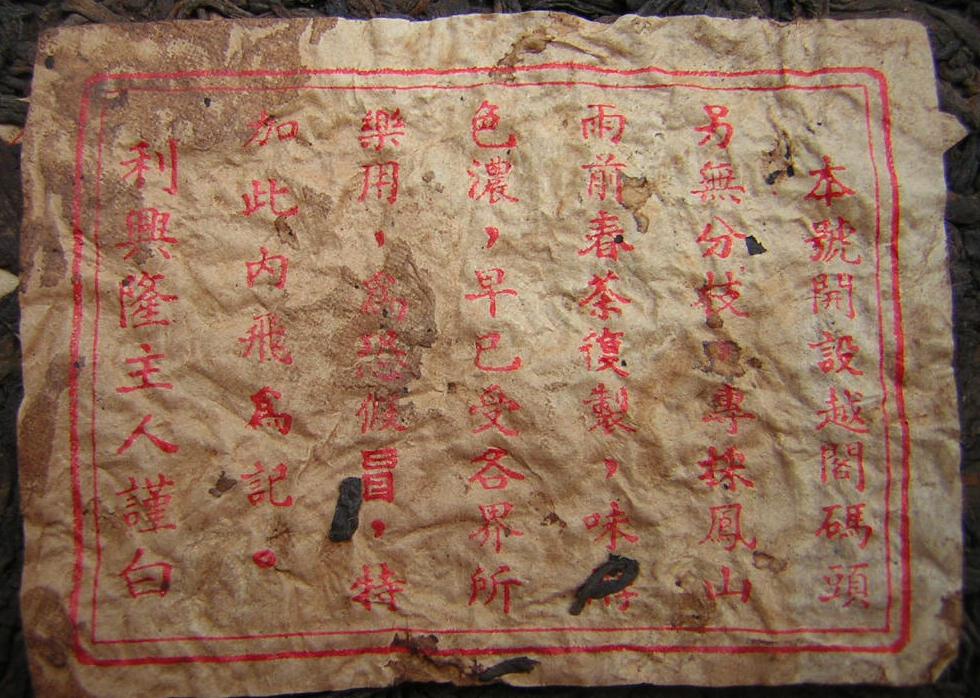 本號開設越閣碼頭
另無分枝專採鳳山
雨前春茶復製，味
色濃，早已受各界所
樂用，為恐假冒，特
加此內飛為記。
利興隆主人謹白